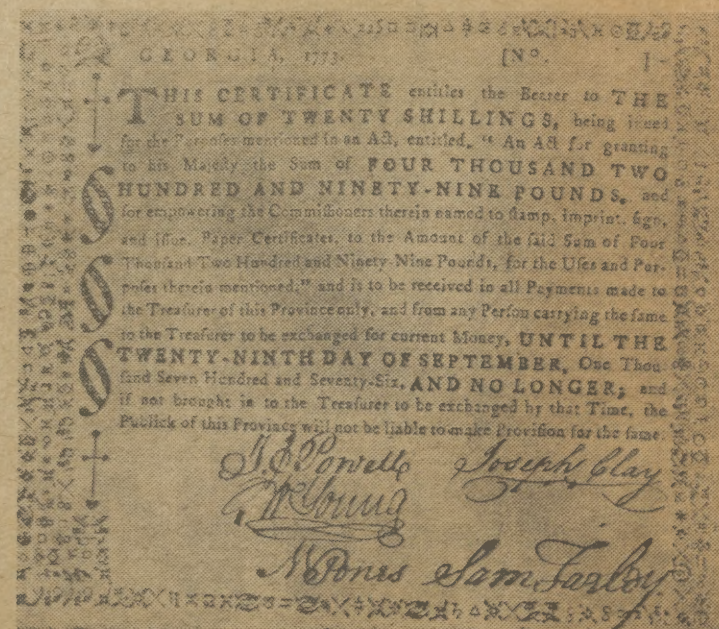 GEORGIA, 1773. [No.
THIS CERTIFICATE entitles the Bearer to THE
SUM OF TWENTY SHILLINGS, being issued
for the Purposes mentioned in an Act, entitled, “ An Act for granting
to his Majesty the Sum of FOUR THOUSAND TWO
HUNDRED AND NINETY-NINE POUNDS, and
for empowering the Commissioners therein named to stamp, imprint, sign,
and issue, Paper Certificates, to the Amount of the said Sum of Four
Thousand Two Hundred and Ninety-Nine Pounds, for the Uses and Pur-
poses therein mentioned,” and is to be received in all Payments made to
the Treasurer of this Province only, and from any Person carrying the same
to the Treasurer to be exchanged for current Money, UNTIL THE
TWENTY-NINTH DAY OF SEPTEMBER, One Thou
sand Seven Hundred and Seventy-Six, AND NO LONGER; and
if not brought in to the Treasurer to be exchanged by that Time, the
Publick of this Province will not be liable to make Provision for the same.
J. E. Powell Joseph Clay
Wm Young
N Jones Sam Farley